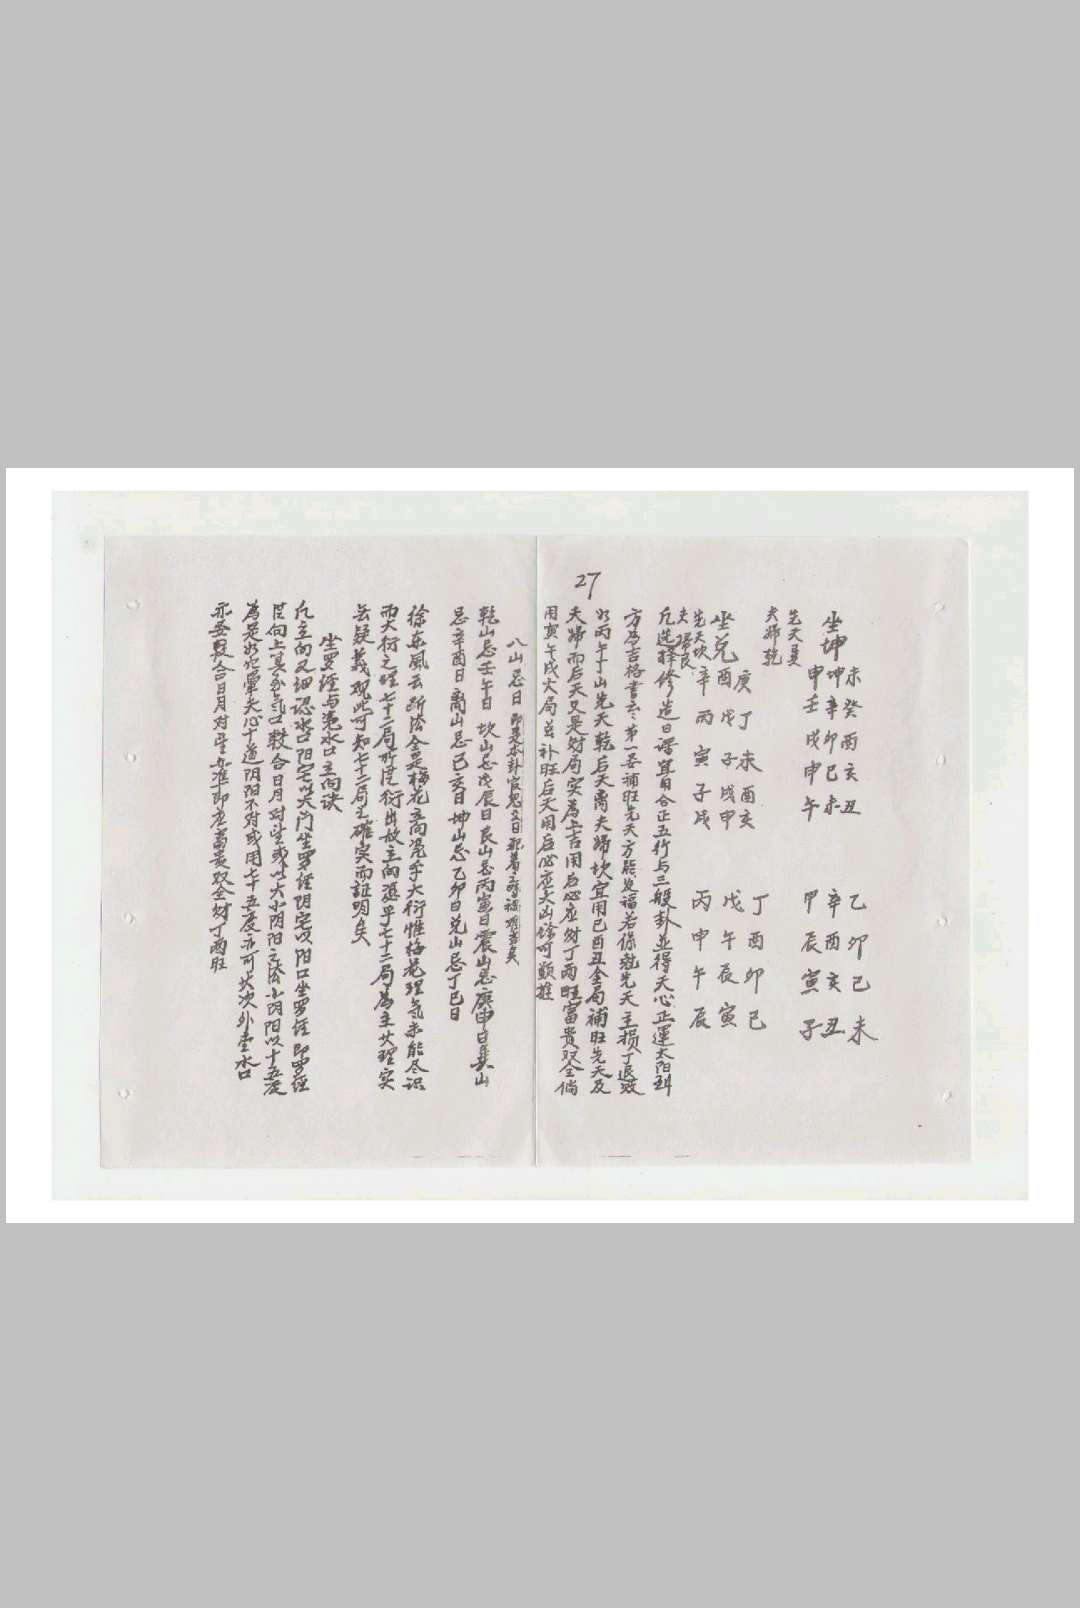 27
坐坤
未癸酉亥丑
坤辛卯巳未
申壬戌申午
乙卯己未
辛酉亥丑
甲辰寅子
先天巽
夫婦乾
坐兑
庚丁未酉亥
酉戊子戌申
辛丙寅子戌
丁酉卯巳
戊午辰寅
丙申午辰
先天坎
夫婦艮
凡选择修造日課宜自合正五行与三般卦並得天心正運太阳到
方為吉格書云第一要補旺先天方能发福若係尅先天主损丁退敗
如丙午丁山先天乾后天离夫婦坎宜用巳酉丑金局補旺先天及
夫婦而后天又是财局实為上吉用后必应财丁两旺富貴双全倘
用寅午戌火局 补旺后天用后必应大凶馀可類推
八山忌日 即是本卦官鬼爻日
乾山忌壬午日 坎山忌戊辰日 艮山忌丙寅日 震山忌庚申日 巽山
忌辛酉日 离山忌己亥日 坤山忌乙卯日 兑山忌丁巳日
徐东風云 所法全是梅花立向混乎大衍惟梅花理气未能尽识
而大衍之理七十二局 衍出故立向 乎七十二局為主 理实
云疑義观此可知七十二局之確实而証明矣
坐罗经与 水口立向诀
凡立向又细認水口阳宅以大门坐罗经阴宅以阳口坐罗经即罗经
向上真 气口 較合日月对望或以大小阴阳之法小阴阳以十五度
為是如 天心十道阴阳不对或用七十五度亦可 次外堂水口
亦要較合日月对望 準即 富貴双全财丁两旺